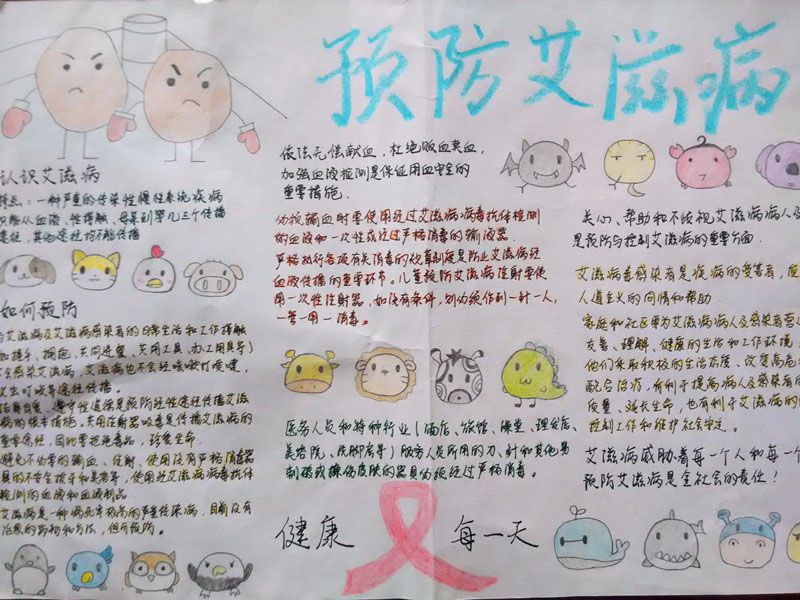 预防艾滋病
认识艾滋病
特点:一种严重的传染性慢性系统疾病
只能从血液、性接触、母婴到婴儿三个传播
途径,其他途径均不能传播
如何预防
与艾滋病及艾滋病感染者的日常生活和工作接触
如握手、拥抱、共同进餐、共用工具、办工用具等)
不会感染艾滋病,艾滋病也不会经咳嗽打喷嚏,
蚊虫叮咬等途径传播。
洁身自爱、遵守性道德是预防经性途径传播艾滋
病的根本措施。共用注射器吸毒是传播艾滋病的
重要途径,因此要拒绝毒品,珍爱生命
避免不必要的输血、注射、使用没有严格消毒器
检测的血液和血液制品
艾滋病是一种病死率极高的严重传染病.目前没有
治愈的药物和方法,但可预防。
依法无偿献血,杜绝贩血卖血,
加强血液检测是保证用血安全的
重要措施.
必须输血时要使用经过艾滋病病毒抗体检测
的血液和一次性或经过严格消毒的输液器.
严格执行各项有关消毒的规章制度是防止艾滋病经
血液传播的重要环节。儿童预防艾滋病注射要使
用一次性注射器,如没有条件,则必须作到一针一人,
一管一用一消毒。
医务人员和特种行业(酒店、旅馆、澡堂、理发店、
美容院、洗脚房等)服务人员所用的刀、针和其他易
刺破或擦伤皮肤的器具必须经过严格消毒。
健康 每一天
关心、帮助和不歧视艾滋病病人及
是预防与控制艾滋病的重要方面.
艾滋病毒感染者是疾病的受害者,应
人道主义的同情和帮助.
家庭和社区要为艾滋病病人及感染者营
友善、理解、健康的生活和工作环境,
他们采取积极的生活态度、改变高危
配合治疗,有利于提高病人及感染者的
质量、延长生命,也有利于艾滋病的
控制工作和维护社会安定。
艾滋病威胁着每一个人和每一个
预防艾滋病是全社会的责任!